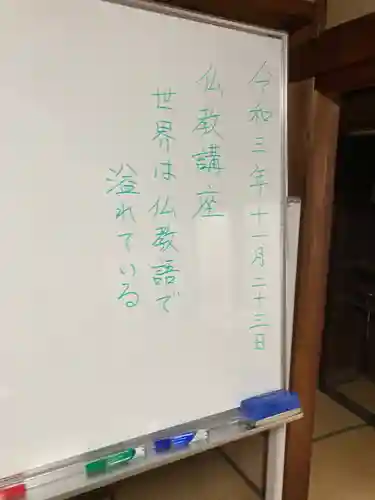 令和三年十一月二十三日
仏教講座
世界は仏教語で
溢れている